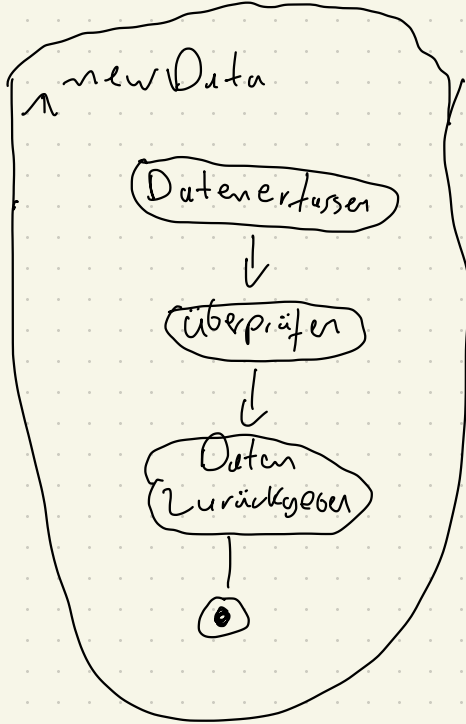 newData
Datenerfassen
überprüfen
Daten
Zurückgeben